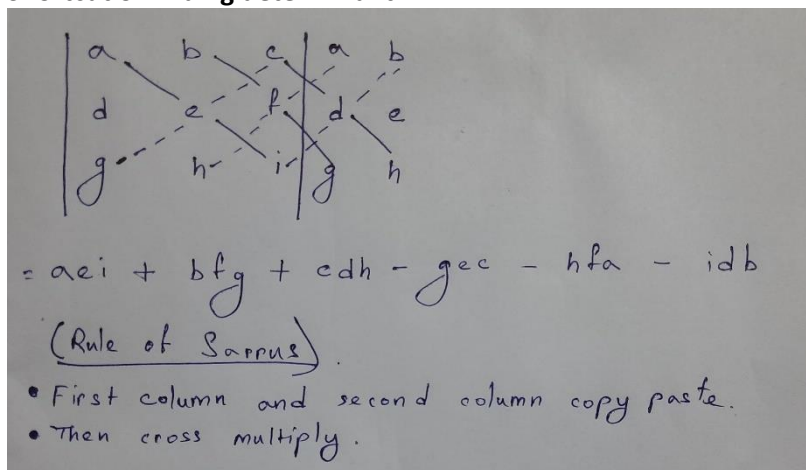 a b c a b
d e f d e
g h i g h
= aei + bfg + cdh - gec - hfa - idb
(Rule of Sarrus).
• First column and second column copy paste.
• Then cross multiply.